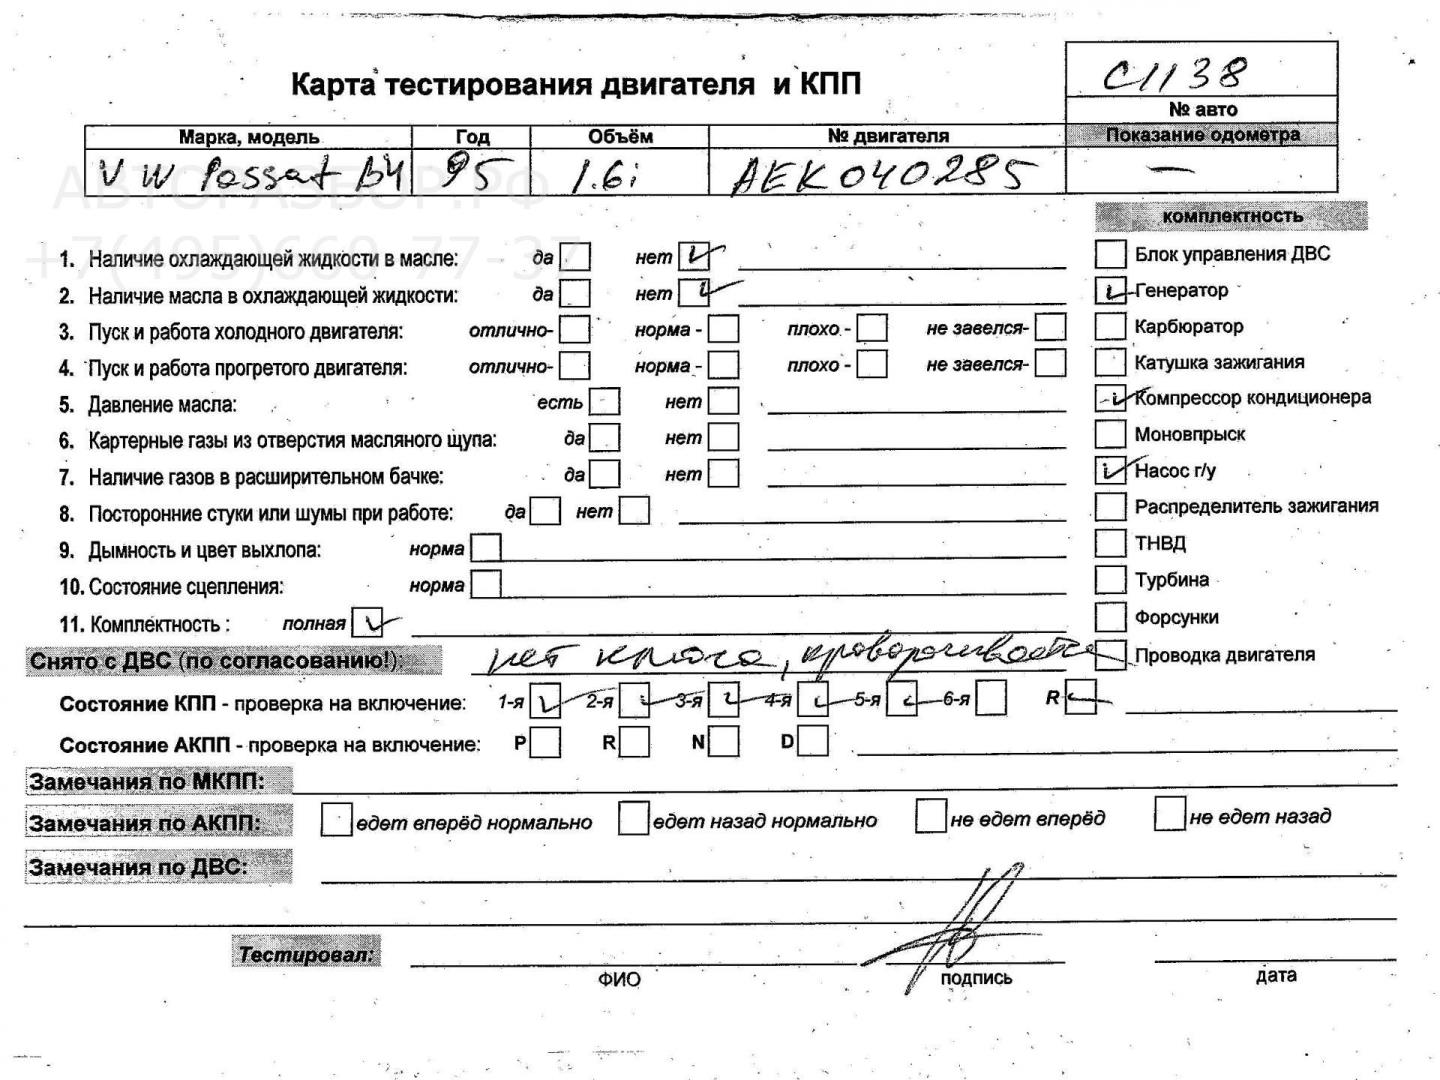 Карта тестирования двигателя и КПП
С1138
№ авто
Марка, модель Год Объём № двигателя Показание одометра
VW Passat B4 95 1.6i AEK040285 —
АВТОРАЗБОР.РФ
+7(495)660-77-37
комплектность
1. Наличие охлаждающей жидкости в масле: да нет
Блок управления ДВС
2. Наличие масла в охлаждающей жидкости: да нет
Генератор
3. Пуск и работа холодного двигателя: отлично- норма - плохо - не завелся-
Карбюратор
4. Пуск и работа прогретого двигателя: отлично- норма - плохо - не завелся-
Катушка зажигания
5. Давление масла: есть нет
Компрессор кондиционера
6. Картерные газы из отверстия масляного щупа: да нет
Моновпрыск
7. Наличие газов в расширительном бачке: да нет
Насос г/у
8. Посторонние стуки или шумы при работе: да нет
Распределитель зажигания
9. Дымность и цвет выхлопа: норма
ТНВД
10. Состояние сцепления: норма
Турбина
11. Комплектность : полная
Форсунки
Снято с ДВС (по согласованию!): нет ключа, проворачивается
Проводка двигателя
Состояние КПП - проверка на включение: 1-я 2-я 3-я 4-я 5-я 6-я R
Состояние АКПП - проверка на включение: P R N D
Замечания по МКПП:
Замечания по АКПП: едет вперёд нормально едет назад нормально не едет вперёд не едет назад
Замечания по ДВС:
Тестировал:
ФИО подпись дата